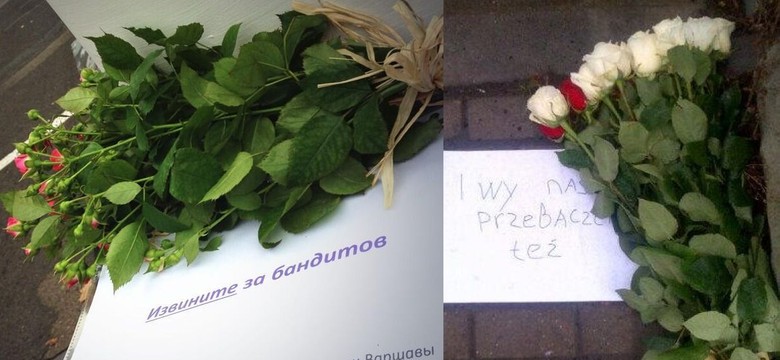 Извините за бандитов
Варшавы
I wy
przebacz
też